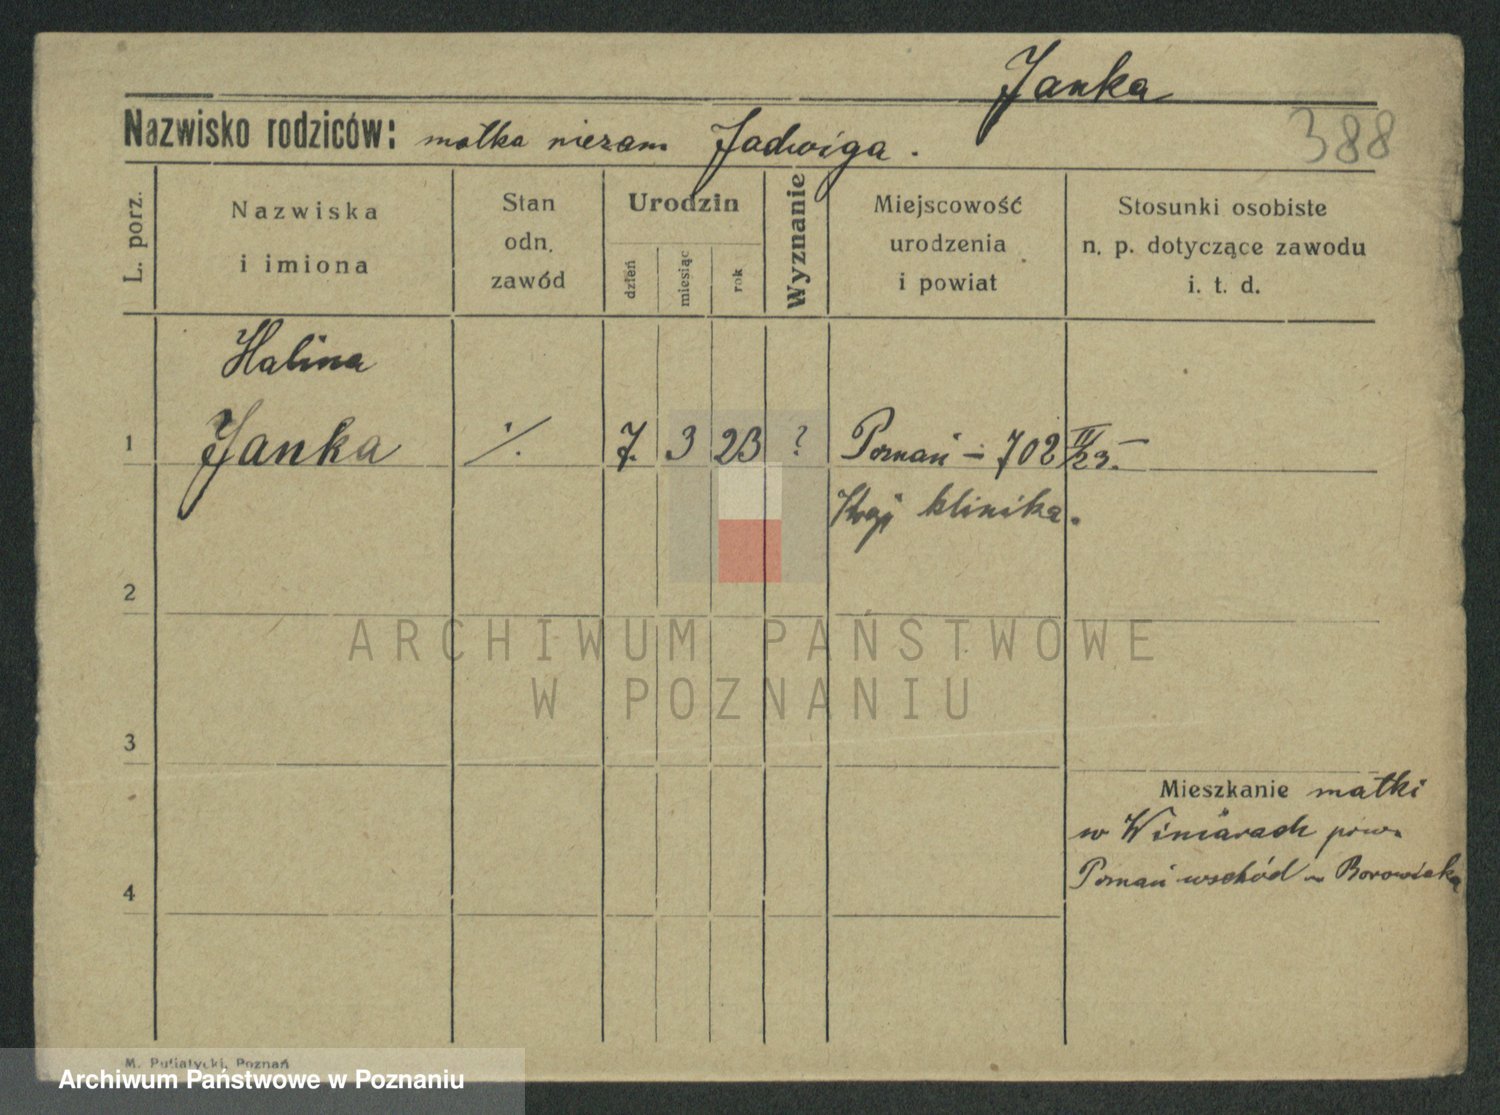 Janka
Nazwisko rodziców: matka niezam Jadwiga.
388
L. porz.
Nazwiska
i imiona
Stan
odn.
zawód
Urodzin
dzień
miesiąc
rok
Wyznanie
Miejscowość
urodzenia
i powiat
Stosunki osobiste
n. p. dotyczące zawodu
i. t. d.
Halina
1 Janka ·/. 7. 3 23 ? Poznań – 702 II/23. –
Kraj klinika.
2
ARCHIWUM PAŃSTWOWE
W POZNANIU
3
Mieszkanie matki
w Winiarach pow.
4
Poznań wschód u Borowiaka
M. Putiatycki, Poznań
Archiwum Państwowe w Poznaniu